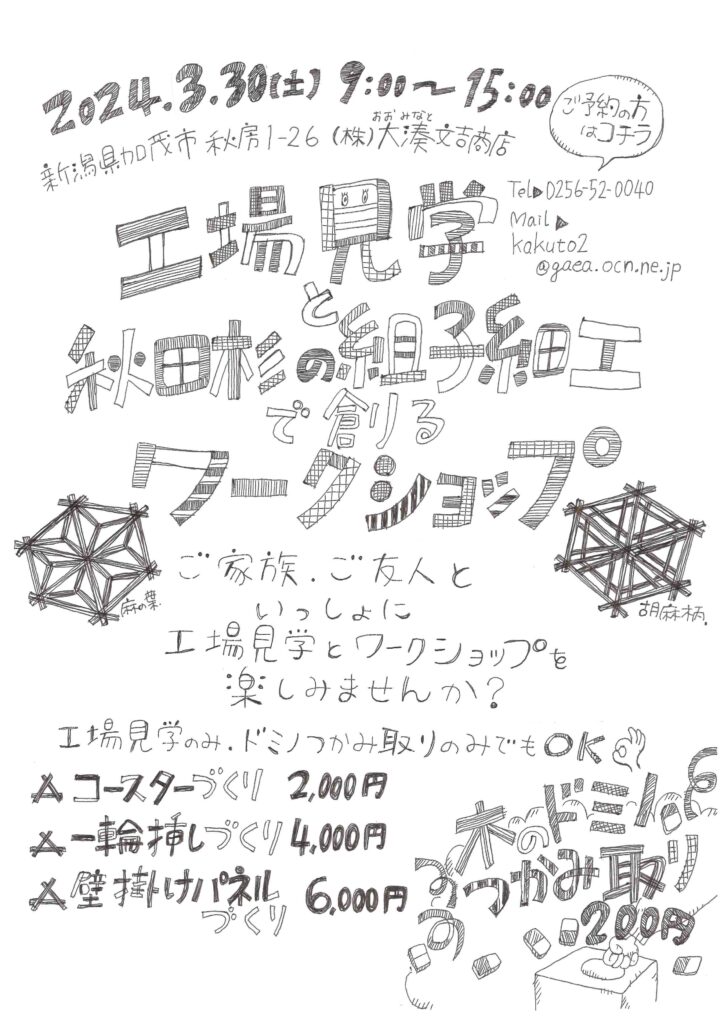 2024.3.30(土) 9:00〜15:00
新潟県加茂市 秋房1-26 (株)大湊文吉商店
おおみなと
ご予約の方
はコチラ
Tel▶0256-52-0040
Mail▶
kakuto2
@gaea.ocn.ne.jp
工場見学
と
秋田杉の組子細工
で創る
ワークショップ
麻の葉
胡麻柄
ご家族・ご友人と
いっしょに
工場見学とワークショップを
楽しみませんか?
工場見学のみ・ドミノつかみ取りのみでもOK
コースターづくり 2,000円
一輪挿しづくり 4,000円
壁掛けパネル
づくり 6,000円
木のドミノ
つかみ取り
200円